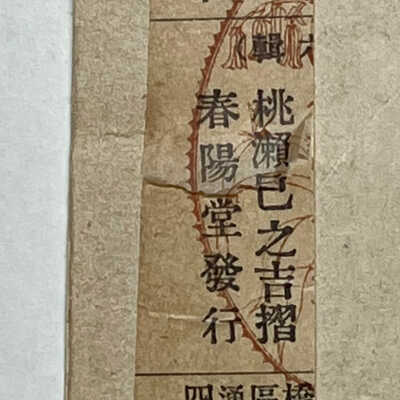 輯
桃瀨巳之吉摺
春陽堂發行
四通區橋